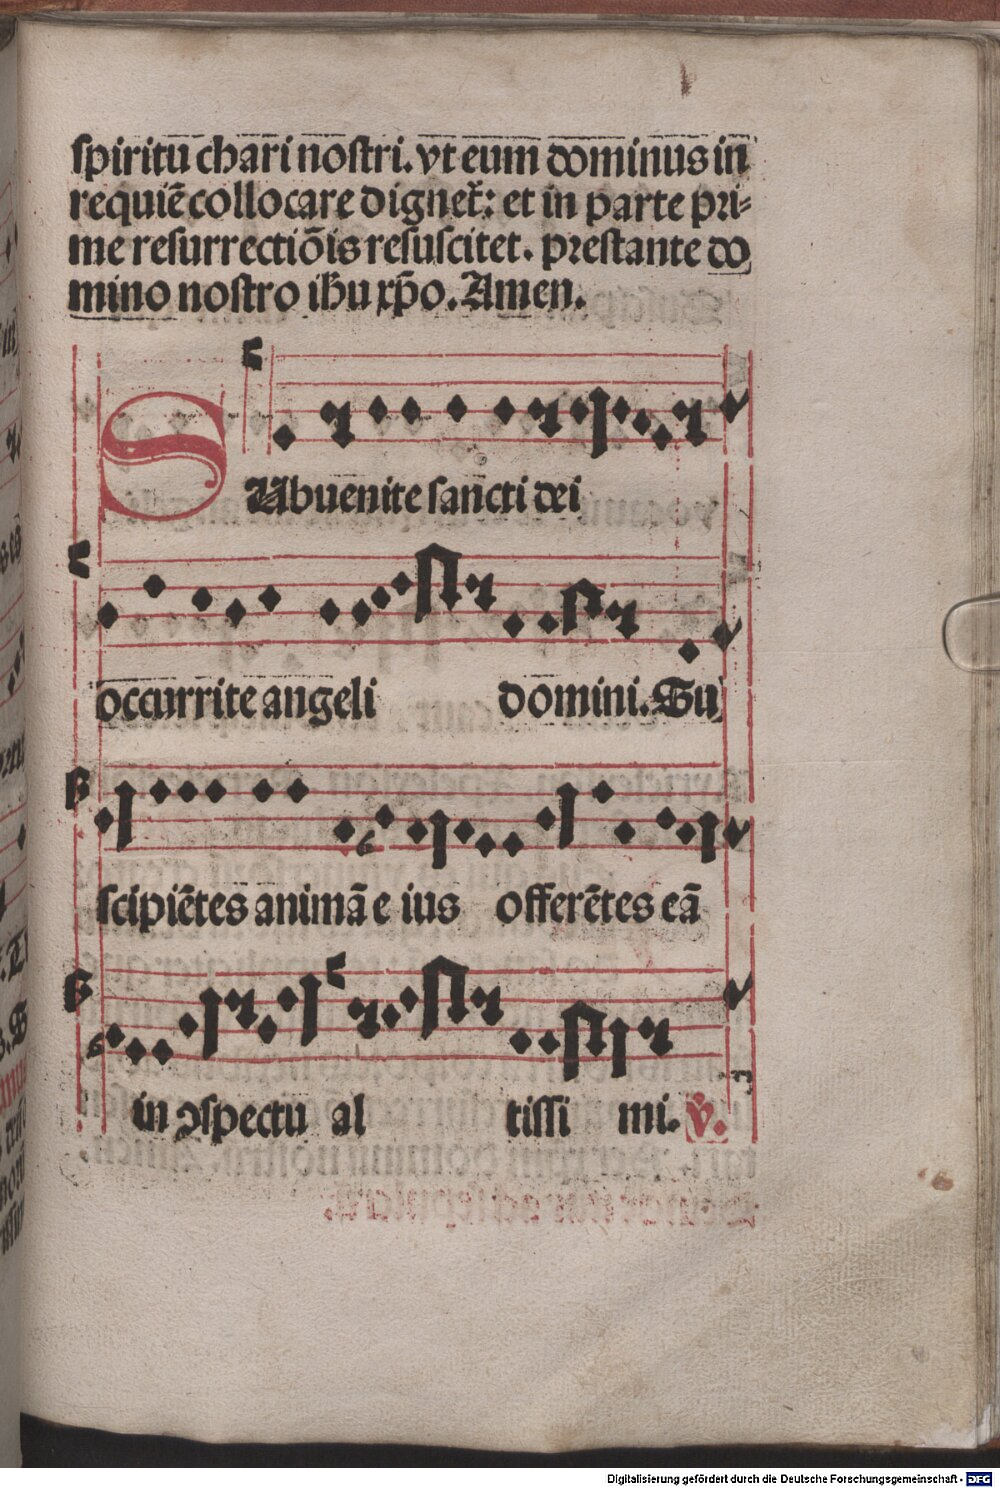 spiritu chari nostri. vt eum dominus in
requiē collocare dignet᷒: et in parte pri⸗
me resurrectiōis resuscitet. prestante do
mino nostro ihu xp̄o. Amen.
SUbuenite sancti dei
occurrite angeli domini. Su
scipiētes animā e ius offerētes eā
in ↄspectu al tissi mi. ℣.
Digitalisierung gefördert durch die Deutsche Forschungsgemeinschaft - DFG